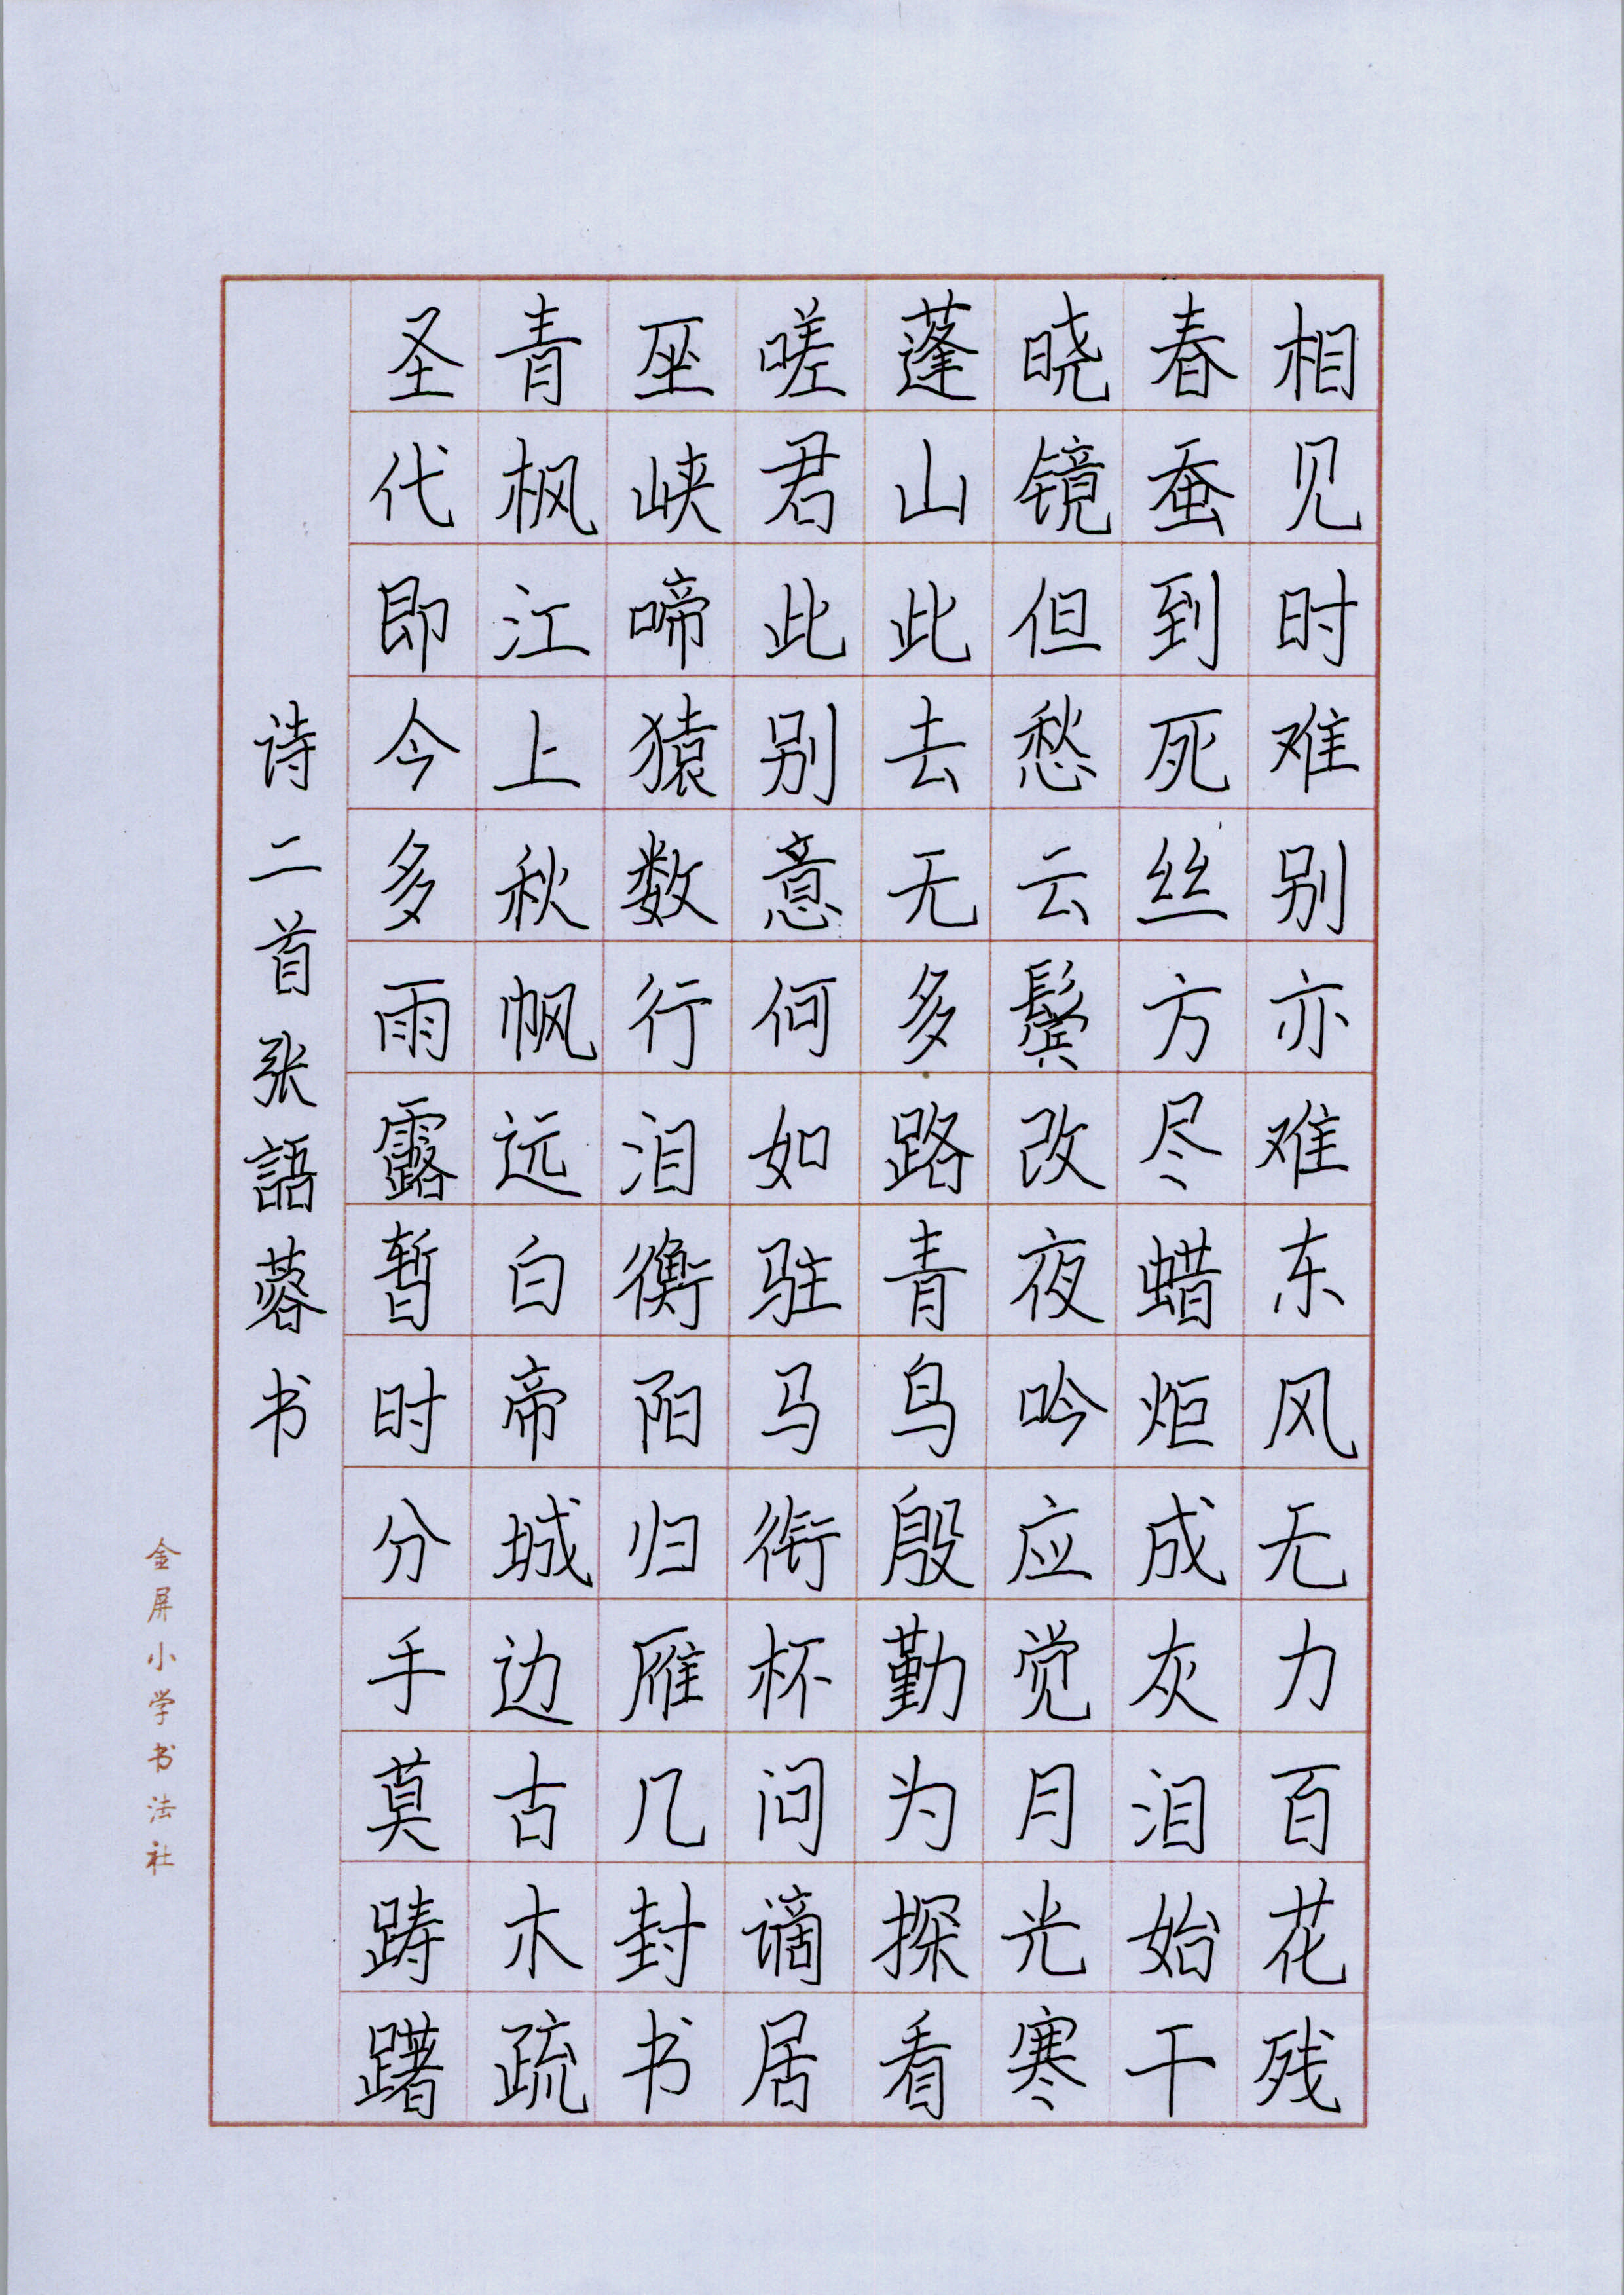 相见时难别亦难东风无力百花残
春蚕到死丝方尽蜡炬成灰泪始干
晓镜但愁云鬓改夜吟应觉月光寒
蓬山此去无多路青鸟殷勤为探看
嗟君此别意何如驻马衔杯问谪居
巫峡啼猿数行泪衡阳归雁几封书
青枫江上秋帆远白帝城边古木疏
圣代即今多雨露暂时分手莫踌躇
诗二首张語蓉书
金屏小学书法社